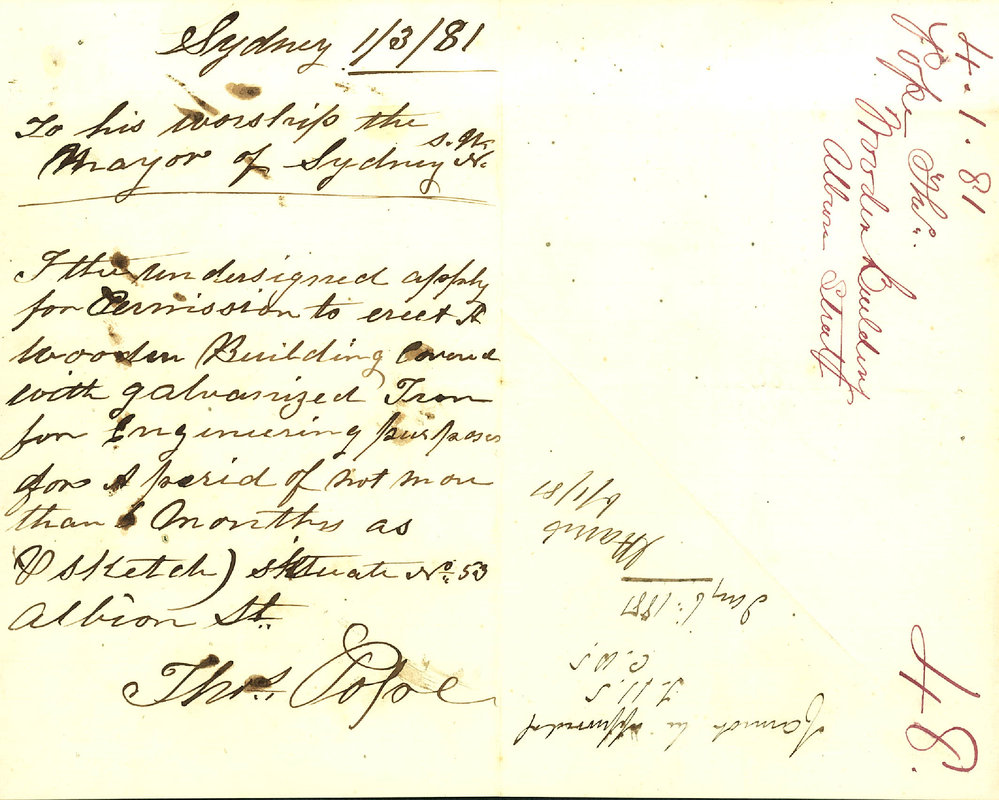 Sydney 1/3/81
To his worship the
Mayor of Sydney N.S.W.
I the undersigned apply
for Permission to erect A
wooden Building Covered
with galvanized Iron
for Engineering purposes
for A perid of not more
than 6 Months as
sketch) situate No. 53
Albion St.
Thos. Pope
4.1.81
Pope Thos.
Wooden Buildint
Albion Streatt
48.
Cannot be approved of
C.W.S
Jany 6: 1881
6/1/81